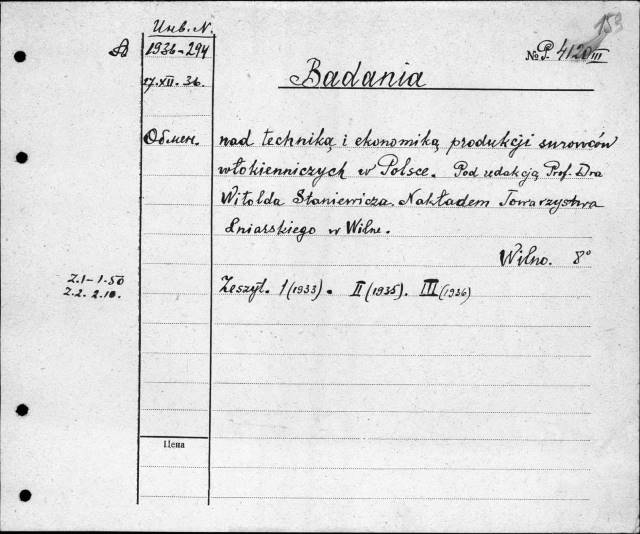 159
Инв. N.
1936-294
№ P. 4120 III
17.XII.36.
Badania
Обмен.
nad techniką i ekonomiką produkcji surowców
włokienniczych w Polsce. Pod redakcją Prof. Dra
Witolda Staniewicza. Nakładem Towarzystwa
Lniarskiego w Wilne.
Wilno. 8°
Z.1-1.50
Z.2. 2.10.
Zeszyt. 1 (1933). II (1935). III (1936)
Цена